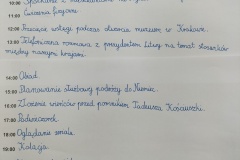 10:00 Spotkanie z
11:00 Ćwiczenia fizyczne
12:00 Przecięcie wstęgi podczas otwarcia muzeum w Krakowie.
13:00 Telefoniczna rozmowa z prezydentem Litwy na temat stosunków
między naszymi krajami.
14:00 Obiad.
15:00 Planowanie służbowej podróży do Niemiec.
16:00 Złożenie wieńców przed pomnikiem Tadeusza Kościuszki.
17:00 Podwieczorek
18:00 Oglądanie seriale
19:00 Kolacja